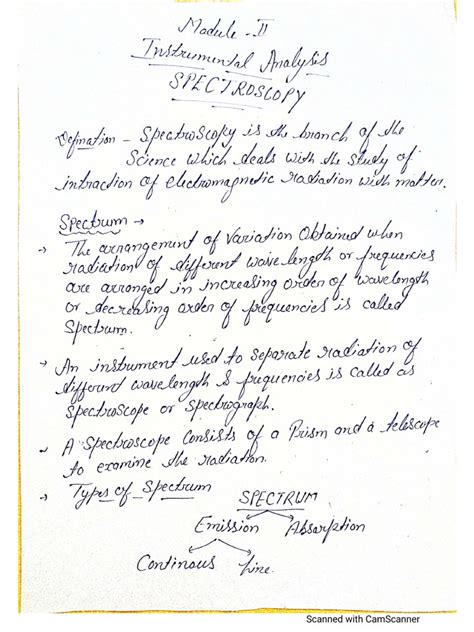 Module - II
Instrumental Analysis
SPECTROSCOPY
Defination - Spectroscopy is the branch of the
Science which deals with the study of
intraction of electromagnetic radiation with matter.
Spectrum →
→ The arrangement of Variation Obtained when
radiation of different wave length or frequencies
are arranged in increasing order of wavelength
or decreasing order of frequencies is called
Spectrum.
→ An instrument used to separate radiation of
different wavelength & frequencies is called as
Spectroscope or Spectrograph.
→ A Spectroscope Consists of a Prism and a teliscope
to examine the radiation.
→ Types of Spectrum
SPECTRUM
Emission Absorption
Continous Line.
Scanned with CamScanner